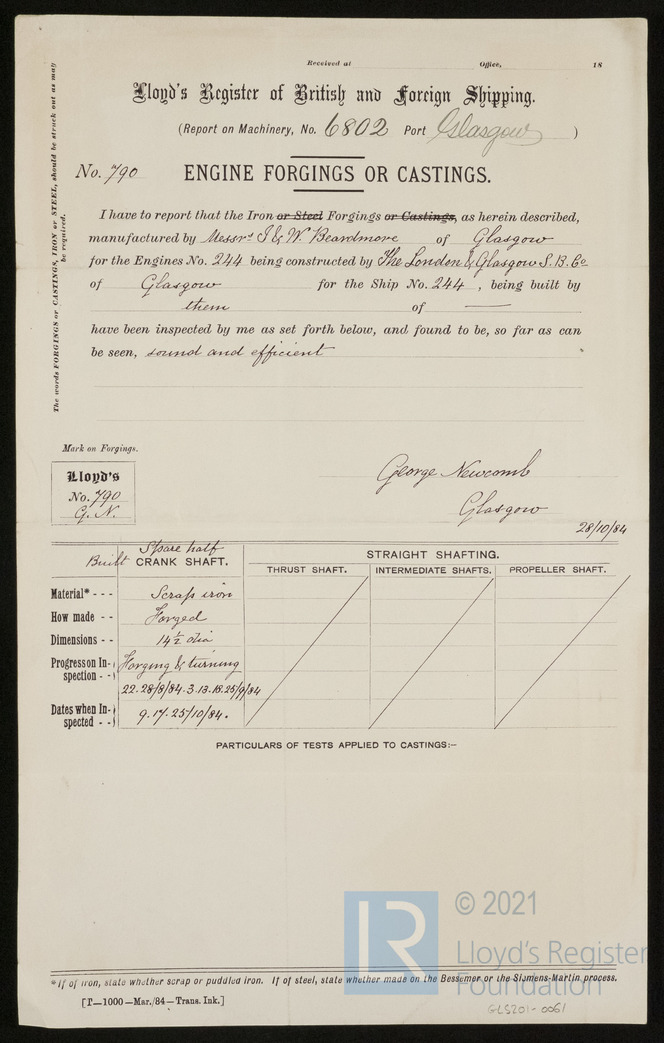 Received at Office, 18
Lloyd's Register of British and Foreign Shipping.
(Report on Machinery, No. 6802 Port Glasgow )
No. 790 ENGINE FORGINGS OR CASTINGS.
The words FORGINGS or CASTINGS, IRON or STEEL, should be struck out as may
be required.
I have to report that the Iron or Steel Forgings or Castings, as herein described,
manufactured by Messrs I & W. Beardmore of Glasgow
for the Engines No. 244 being constructed by The London & Glasgow S. B. Co
of Glasgow for the Ship No. 244, being built by
them of —
have been inspected by me as set forth below, and found to be, so far as can
be seen, sound and efficient
Mark on Forgings.
Lloyd's
No. 790
G. N.
George Newcomb
Glasgow
28/10/84
Spare half
Built CRANK SHAFT.
STRAIGHT SHAFTING.
THRUST SHAFT. INTERMEDIATE SHAFTS. PROPELLER SHAFT.
Material* - - - Scrap iron
How made - - Forged
Dimensions - - 14½ dia
Progress on In-
spection - - Forging & turning
22.28/8/84.3.13.18.25/9/84
Dates when In-
spected - - 9.17.25/10/84.
PARTICULARS OF TESTS APPLIED TO CASTINGS:–
LR © 2021
Lloyd's Register
Foundation
*If of iron, state whether scrap or puddled iron. If of steel, state whether made on the Bessemer or the Siemens-Martin process.
[T—1000—Mar./84—Trans. Ink.]
GLS201-0061